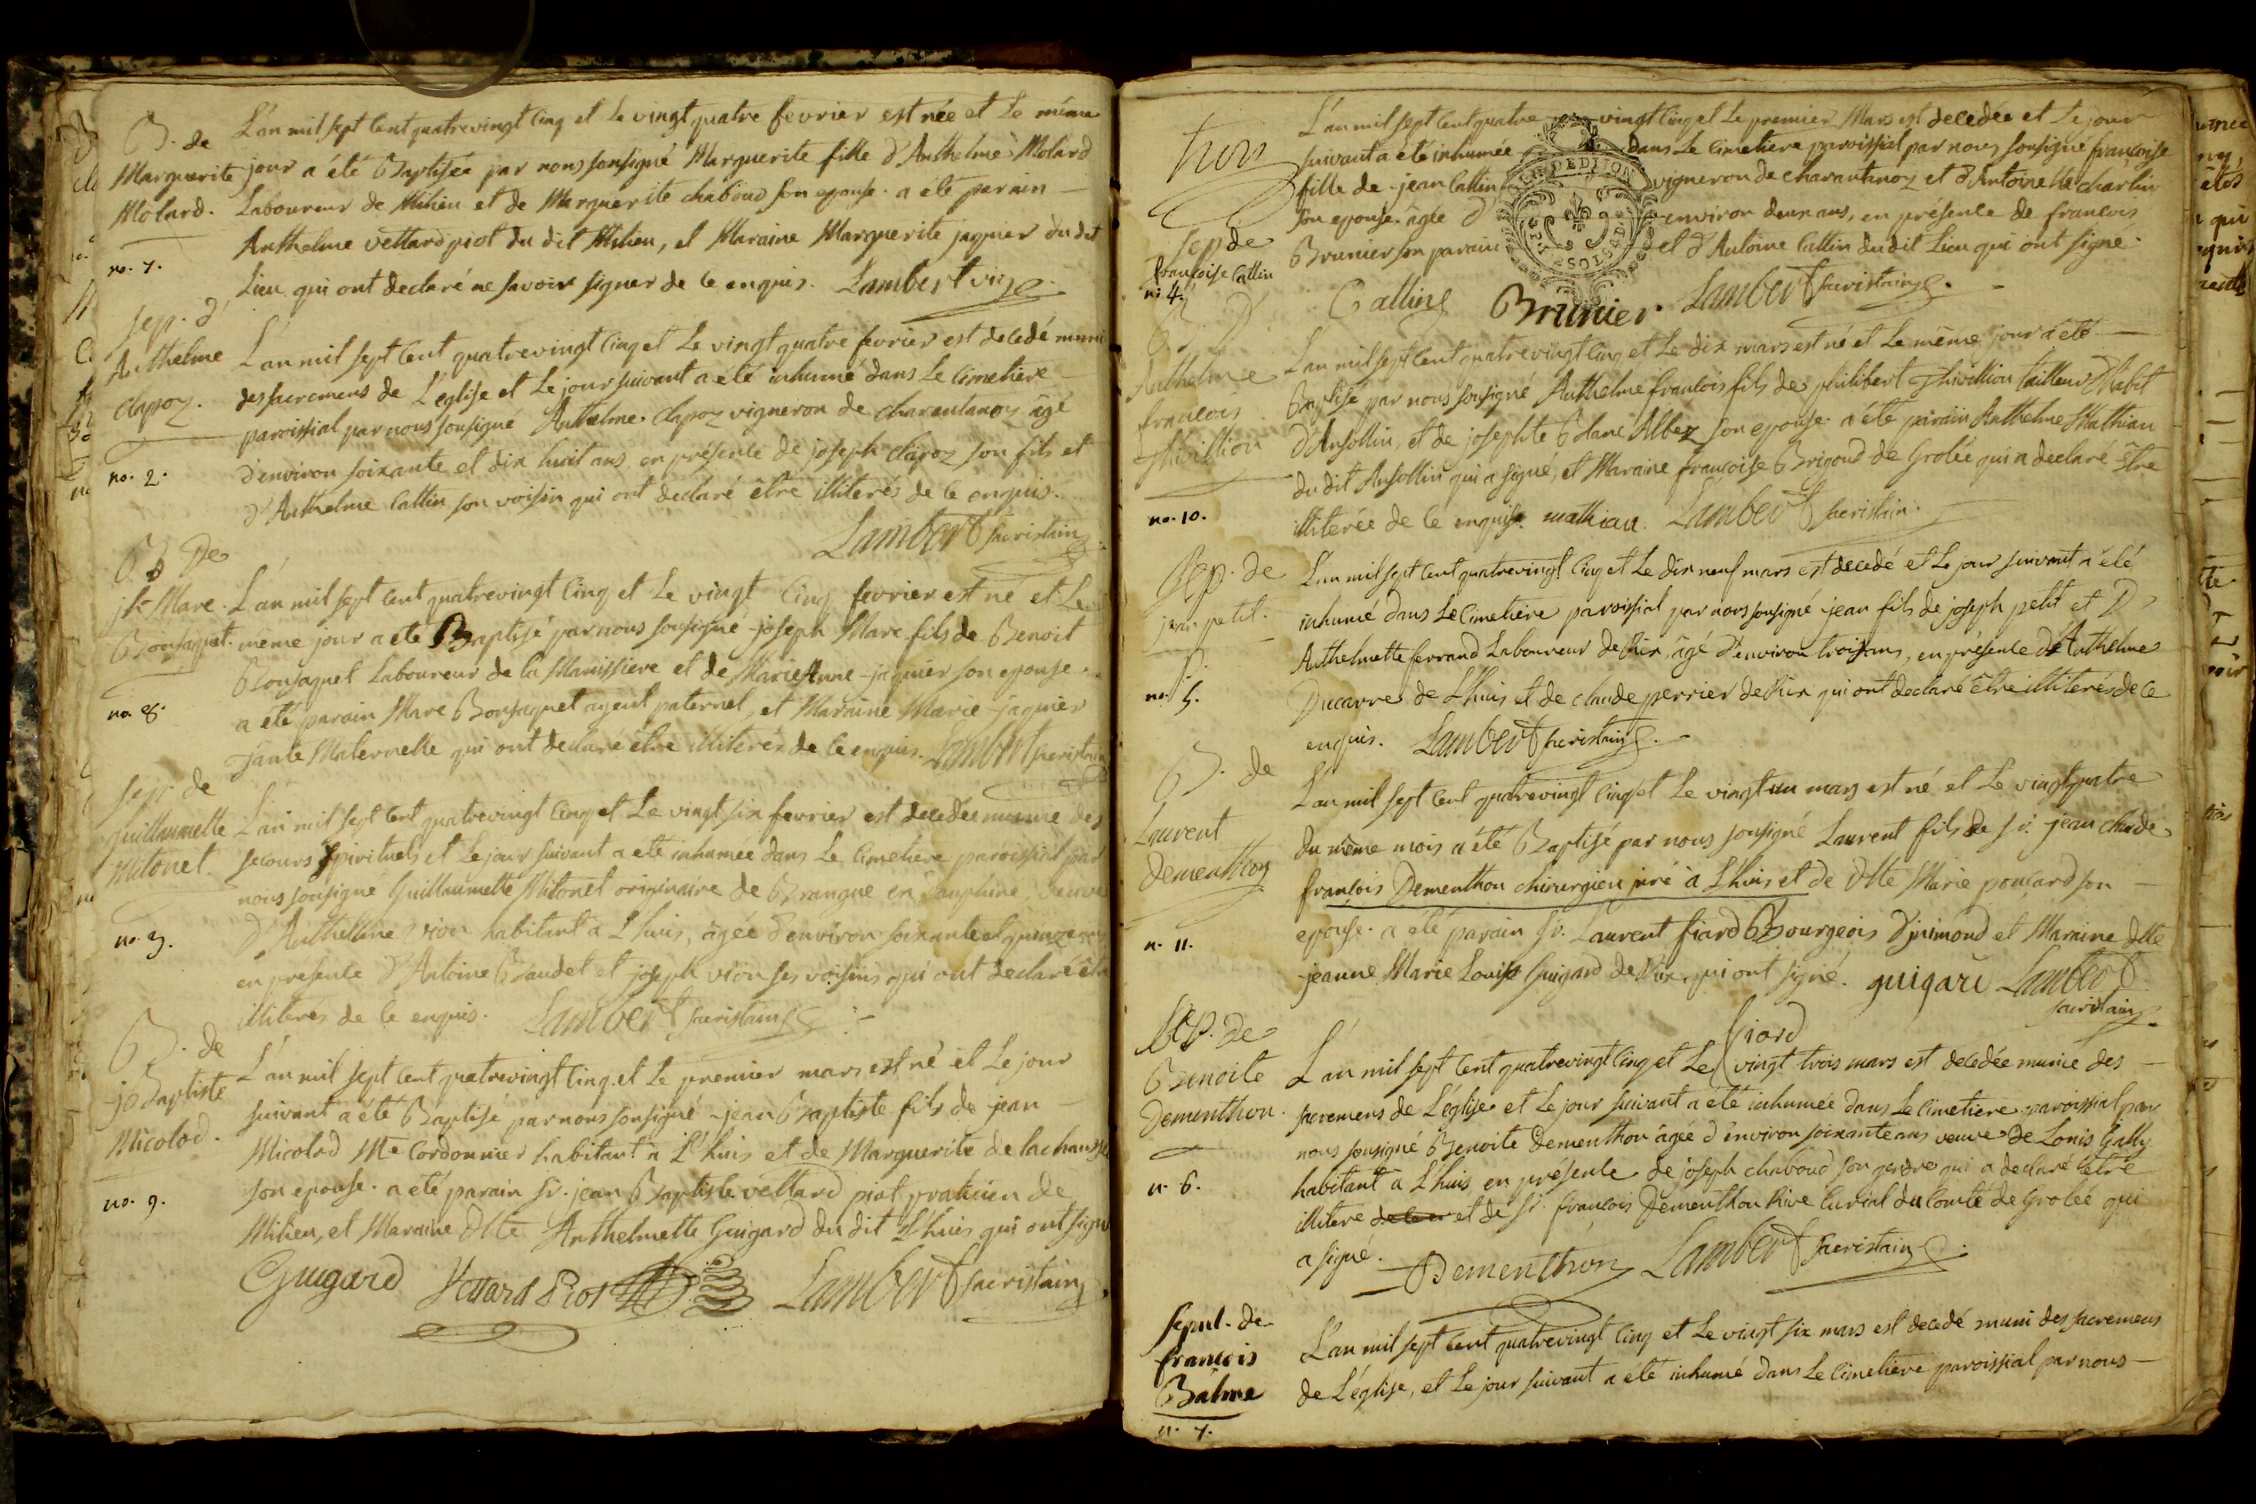 B. de
Marguerite
Molard.
no. 7.
L'an mil sept Cent quatrevingt Cinq et Le vingt quatre fevrier est née et Le même
jour a été Baptisée par nous sousigné Marguerite fille d'Anthelme Molard
Laboureur de Milieu et de Marguerite chaboud son epouse. a été parain
Anthelme Vettard piot du dit Milieu, et Maraine Marguerite jaquier du dit
Lieu qui ont declaré ne savoir signer de Ce enquis. Lambert
sep. d'
Anthelme
Clapoz.
no. 2.
L'an mil sept Cent quatrevingt Cinq et Le vingt quatre fevrier est decedé muni
des sacremens de L'eglise et Le jour suivant a eté inhumé dans Le Cimetiere
paroissial par nous sousigné Anthelme Clapoz vigneron de Charantanoz âgé
d'environ soixante et dix huit ans en présence de joseph Clapoz son fils et
d'Anthelme Callin son voisin qui ont declaré être illiterés de Ce enquis.
Lambert sacristain
B. De
jh Marc
Bonsaquet.
no. 8.
L'an mil sept Cent quatrevingt Cinq et Le vingt Cinq fevrier est né et Le
meme jour a eté Baptisé par nous sousigné joseph Marc fils de Benoit
Bonsaquet Laboureur de la Manissiere et de Marie Anne jaquier son epouse.
a été parain Marc Bonsaquet ayeul paternel, et Maraine Marie jaquier
Tante Maternelle qui ont declaré être illiterés de Ce enquis. Lambert sacristain
sep. de
Guillaumette
Mitonet.
no. 3.
L'an mil sept Cent quatrevingt Cinq et Le vingt six fevrier est decedée munie des
secours spirituels et Le jour suivant a eté inhumée dans Le Cimetiere paroissial par
nous sousigné Guillaumette Mitonet originaire de Brangue en Dauphiné, veuve
d'Anthelme vion habitant à L'huis, âgée d'environ soixante et quinze ans
en presence d'Antoine Braudet et joseph vion ses voisins qui ont declaré être
illiterés de Ce enquis. Lambert sacristain
B. de
j. Baptiste
Micolod.
no. 9.
L'an mil sept Cent quatrevingt Cinq et Le premier mars est né et Le jour
suivant a été Baptisé par nous sousigné jean Baptiste fils de jean
Micolod Me Cordonnier habitant à L'huis et de Marguerite de lachan
son epouse. a été parain Sr. jean Baptiste Vettard piot praticien de
Milieu, et Maraine Dlle Anthelmette Guigard du dit L'huis qui ont signé
Guigard Vettard Piot Lambert sacristain
trois
sep de
françoise Callin
no 4.
L'an mil sept Cent quatre vingt Cinq et Le premier Mars est decedée et Le jour
suivant a été inhumée dans Le Cimetiere paroissial par nous sousigné françoise
fille de jean Callin vigneron de charantanoz et d'Antoinette charlin
son epouse âgée d'environ deux ans, en présence de françois
Brunier son parain et d'Antoine Callin du dit Lieu qui ont signé.
Callin Brunier Lambert sacristain
B. D
Anthelme
françois
Thivillion
no. 10.
L'an mil sept Cent quatrevingt Cinq et Le dix mars est né et Le même jour a eté
Baptisé par nous sousigné Anthelme françois fils de philibert Thivillion tailleur d'habit
d'Ansollin, et de josephte Blanc Albez son epouse. a été parain Anthelme Mathian
du dit Ansollin qui a signé, et Maraine françoise Brigoud de Grolée qui a declaré être
illiterée de Ce enquise. mathian. Lambert sacristain.
Sep. de
jean petit.
no. 5.
L'an mil sept Cent quatrevingt Cinq et Le dix neuf mars est decedé et Le jour suivant a été
inhumé dans Le Cimetiere paroissial par nous sousigné jean fils de joseph petit et D
Anthelmette ferrand Laboureur de Rix, âgé d'environ trois ans, en présence d'Anthelme
Ducarre de L'huis et de claude perrier de Rix qui ont declaré être illiterés de Ce
enquis. Lambert sacristain
B. de
Laurent
Dementhon
n. 11.
L'an mil sept Cent quatrevingt Cinq et Le vingt un mars est né et Le vingtquatre
du même mois a été Baptisé par nous sousigné Laurent fils de Sr. jean claude
françois Dementhon chirurgien juré à L'huis et de Dlle Marie ponçard son
epouse. a été parain Sr. Laurent fiard Bourgeois d'jzimond et Maraine Dlle
jeanne Marie Louise Guigard de Rix, qui ont signé. guigard Lambert
sacristain
fiard
Sep. de
Benoite
Dementhon.
n. 6.
L'an mil sept Cent quatrevingt Cinq et Le vingt trois mars est decedée munie des
sacremens de L'église et Le jour suivant a eté inhumée dans Le Cimetiere paroissial par
nous sousigné Benoite Dementhon âgée d'environ soixante ans veuve de Louis Gally
habitant à L'huis en présence de joseph chaboud son gendre qui a declaré être
illiteré et de Sr. françois Dementhon Curial du Comté de Grolée qui
a signé. Dementhon Lambert sacristain
sepul. de
françois
Balme
n. 7.
L'an mil sept Cent quatrevingt Cinq et Le vingt six mars est decedé muni des sacremens
de L'église, et Le jour suivant a été inhumé dans Le Cimetiere paroissial par nous